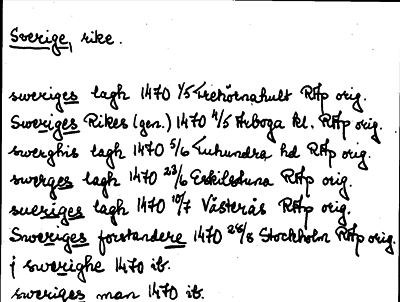 Sverige, rike.
sweriges lagh 1470 1/5 Trehörnahult RAp orig.
Sweriges Rikes (gen.) 1470 4/5 Arboga kl. RAp orig.
swerghis lagh 1470 5/6 Tuhundra hd RAp orig.
swerges lagh 1470 23/6 Eskilstuna RAp orig.
sueriges lagh 1470 10/7 Västerås RAp orig.
Sweriges forstandere 1470 28/8 Stockholm RAp orig.
j swerighe 1470 ib.
sweriges man 1470 ib.